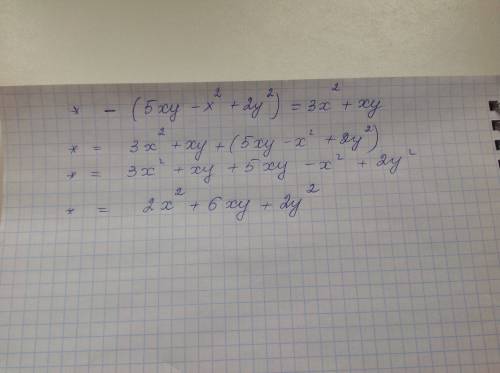 * - (5xy - x² + 2y²) = 3x² + xy
* = 3x² + xy + (5xy - x² + 2y²)
* = 3x² + xy + 5xy - x² + 2y²
* = 2x² + 6xy + 2y²